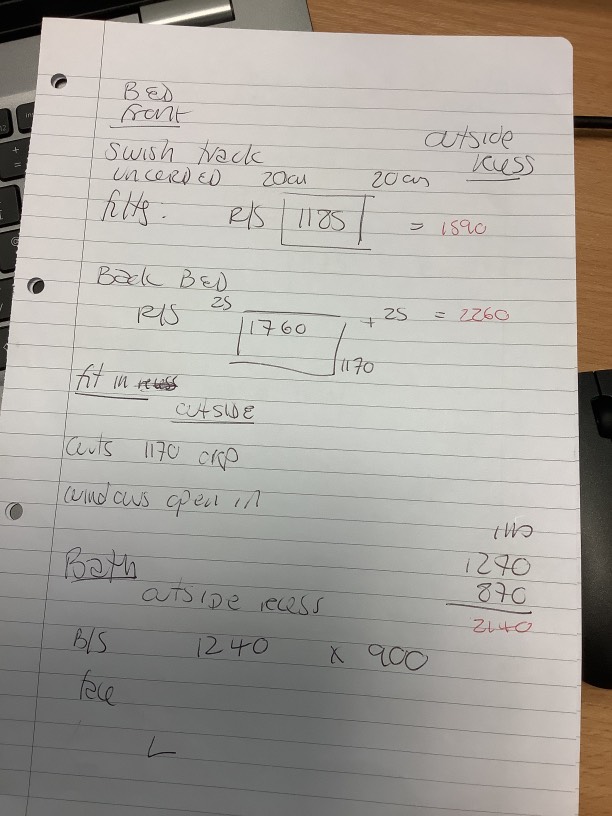 BED
front
outside
recess
swish track
UNCORDED 20cm 20cm
R/S 1185 = 1590
Back BED
R/S 25 1760 + 25 = 2260
1170
fit in recess
outside
1170
windows open in
1270
870
2140
Bath
outside recess
B/S 1240 x 900
face
L